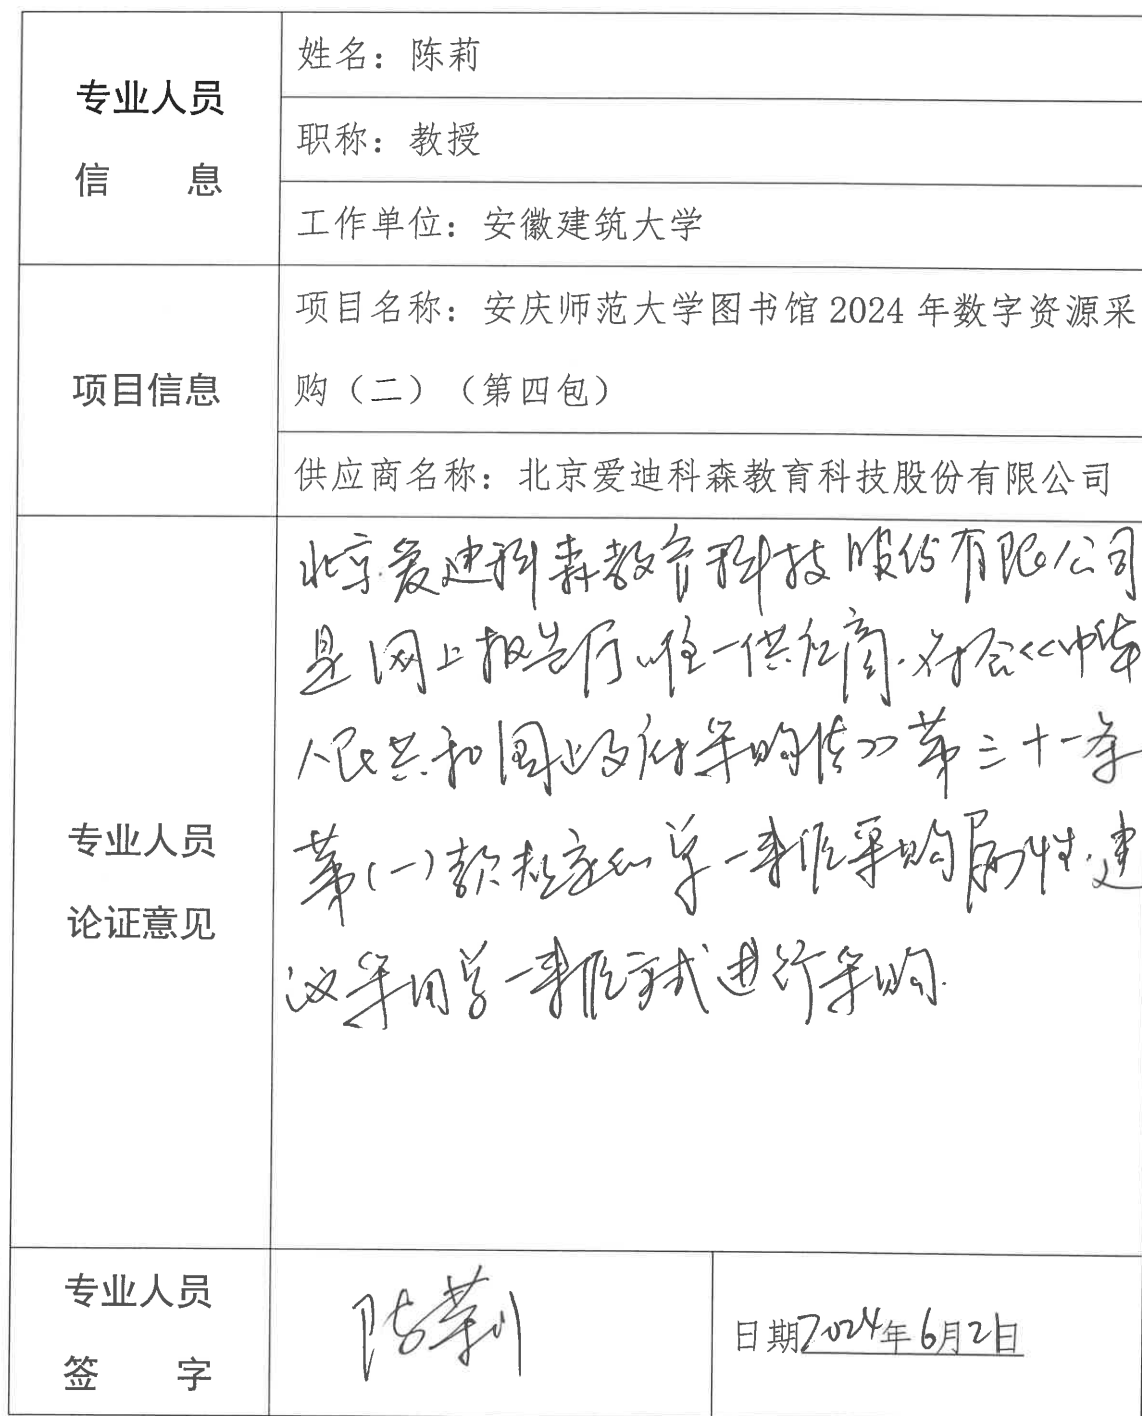 专业人员
信 息
姓名：陈莉
职称：教授
工作单位：安徽建筑大学
项目信息
项目名称：安庆师范大学图书馆 2024 年数字资源采
购（二）（第四包）
供应商名称：北京爱迪科森教育科技股份有限公司
专业人员
论证意见
北京爱迪科森教育科技股份有限公司
是网上报告厅唯一供应商.符合<<中华
人民共和国政府采购法>>第三十一条
第(一)款规定的单一来源采购属性.建
议采用单一来源方式进行采购.
专业人员
签 字
陈莉
日期2024年6月2日